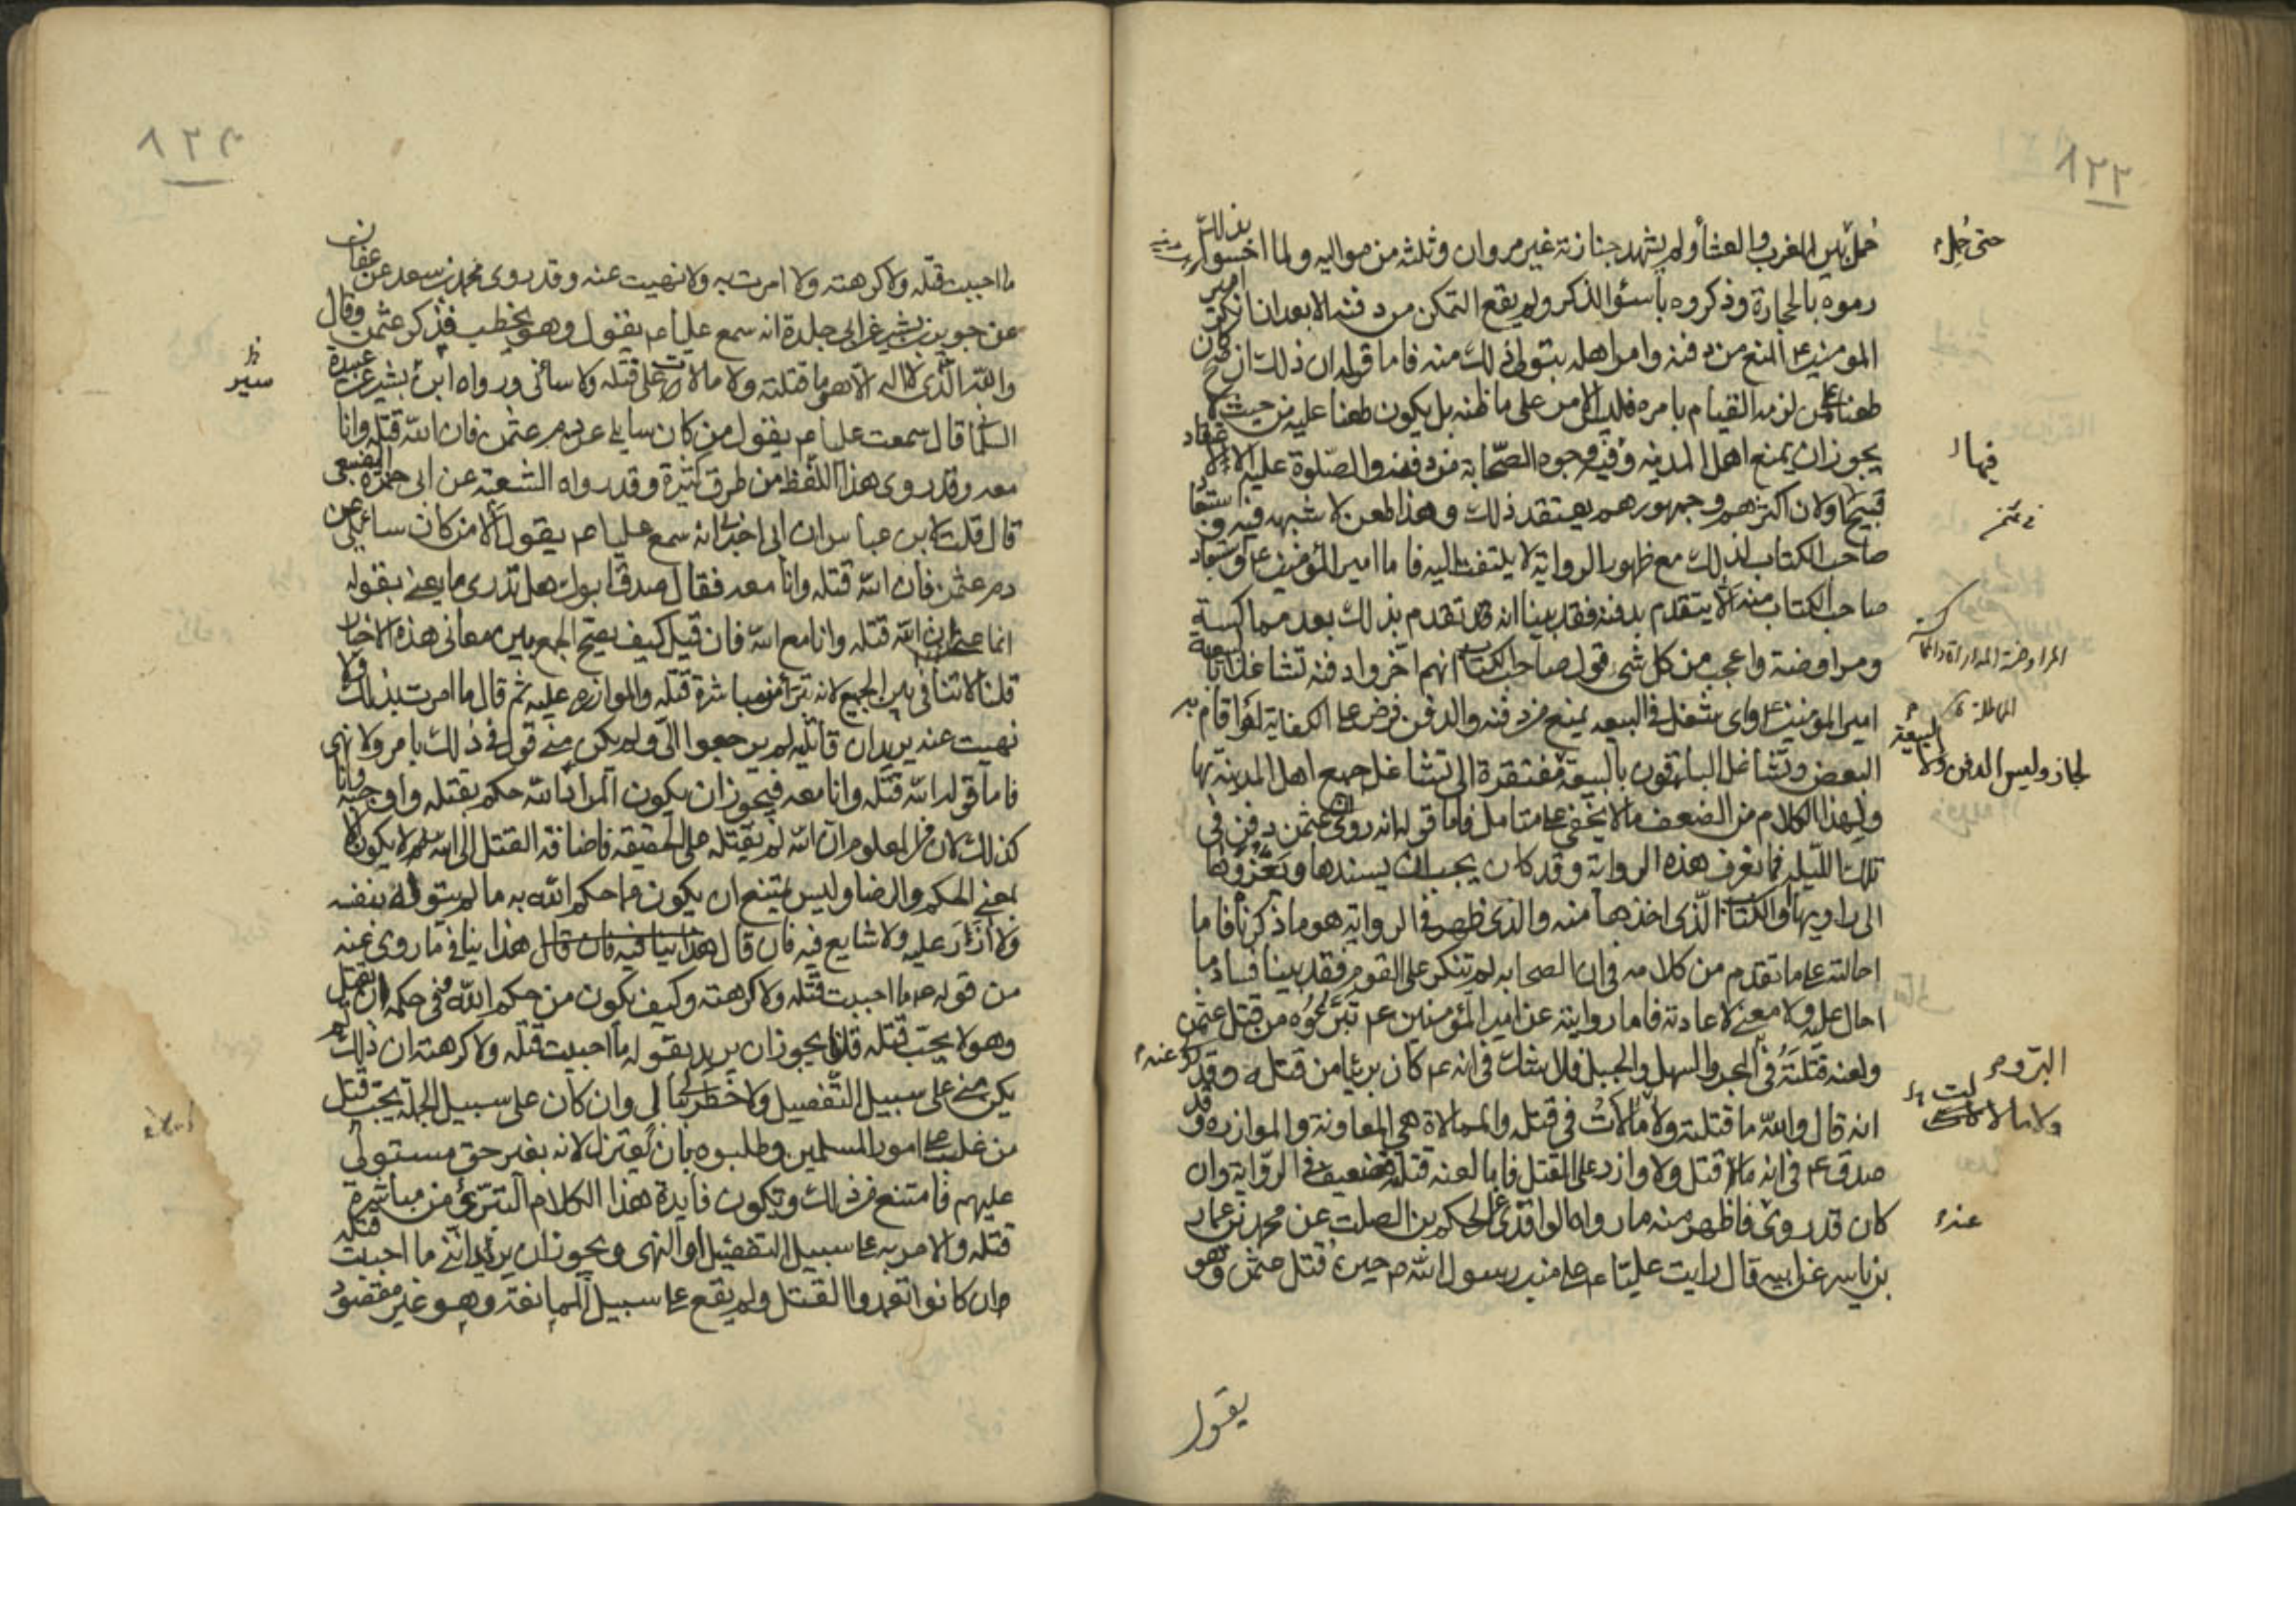 ٨٢٣
حمل بين المغرب والعشأ ولم يشهد جنازته غير مروان وثلثه من مواليه ولما احسوا بذلك
رموه بالحجارة وذكروه بأسئو الذكر ولم يقع التمكن من دفنه الا بعد ان انكر امير
المومنين ع المنع من دفنه وامر اهله بتولى ذلك منه فاما قوله ان ذلك ان صح كان
طعنا على من لزمه القيام بامره فليس الامر على ما ظنه بل يكون طعنا عليه من حيث لا
يجوز ان يمنع اهل المدينه وفيها وجوه الصحابة من دفنه والصلوة عليه الا لاعتقاد
قبيح ولان اكثرهم وجمهورهم يعتقد ذلك وهذا طعن لا شبهه فيه واستبعاد
صاحب الكتاب لذلك مع ظهور الرواية لا يلتفت اليه فاما امير المؤمنين ع واستبعاد
صاحب الكتاب منه الا يتقدم بدفنه فقد بينا انه قد تقدم بذلك بعد مماكسة
ومراوضة واعجب من كل شئ قول صاحب الكتاب انهم اخروا دفنه تشاغلا بالبيعة
امير المومنين ع واى شغل فى البيعه يمنع من دفنه والدفن فرض على الكفاية لو قام به
البعض وتشاغل الباقون بالبيعة مفتقرة الى تشاغل جميع اهل المدينة بها
ولهذا الكلام من الضعف ما لا يخفى على متامل فاما قوله انه روى ان عثمن دفن فى
تلك الليله فما نعرف هذه الرواية وقد كان يجب ان يسندها ويعزوها
الى راويها او الكتاب الذى اخذها منه والذى ظهر فى الرواية هو ما ذكرنا فاما
احالته على ما تقدم من كلامه فى ان الصحابه لم تنكر على القوم فقد بينا فساد ما
احال عليه ولا معنى لاعادته فاما روايته عن امير المؤمنين ع تبرئه من قتل عثمن
ولعنه قتلته فى البحر والسهل والجبل فلا شك فى انه ع كان بريئا من قتله وقد روى عنه
انه قال والله ما قتلته ولا مالأت فى قتله والممالاة هى المعاونة والموازره وقد
صدق ع فى انه ما قتل ولا وازر على القتل فاما لعنه قتلته فضعيف فى الرواية وان
كان قدروى فاظهر منه ما رواه الواقدى عن الحكم بن الصلت عن محمد بن عمار
بن ياسر عن ابيه قال رايت عليا ع على منبر رسول الله ص حين قتل عثمن وهو
يقول
حتى حمل
فيها
المراوضة المداراة
المماطلة
لجاز وليس الدفن ولا البيعة
عنه
٨٢٤
ما احببت قتله ولا كرهته ولا امرت به ولا نهيت عنه وقد روى محمد بن سعد عن عفان
عن جويرية بن بشير عن ابى جلدة انه سمع عليا ع يقول وهو يخطب فذكر عثمن وقال
والله الذى لا اله الا هو ما قتلته ولا مالات على قتله ولا سائنى ورواه ابن بشير عن عبيدة
السلمانى قال سمعت عليا ع يقول من كان سايلى عن دم عثمن فان الله قتله وانا
معه وقد روى هذا اللفظ من طرق كثيرة وقد رواه الشعبة عن ابى حمزة الضبعى
قال قلت لابن عباس ان ابى اخبرنى انه سمع عليا ع يقول الا من كان سائلى عن
دم عثمن فان الله قتله وانا معه فقال صدق ابوك هل تدرى ما يعنى بقوله
انما عنى ان الله قتله وانا مع الله فان قيل كيف يصح الجمع بين معانى هذه الاخبار
قلنا لا تنافى بين الجميع لانه تبرأ من مباشرة قتله والموازره عليه ثم قال ما امرت بذلك ولا
نهيت عنه يريد ان قاتليه لم يرجعوا الى ولم يكن منى قول فى ذلك بامر ولا نهى
فاما قوله الله قتله وانا معه فيجوز ان يكون المراد الله حكم بقتله واوجبه وانا
كذلك لان من المعلوم ان الله لم يقتله على الحقيقه فاضافة القتل اليه لا يكون الا
بمعنى الحكم والرضا وليس يمتنع ان يكون مما حكم الله به ما لم يتوله بنفسه
ولا آزر عليه ولا شايع فيه فان قال هذا ينافيه فان قال هذا ينافى ما روى عنه
من قوله ع ما احببت قتله ولا كرهته وكيف يكون من حكم الله وفى حكمه ان يقتل
وهو لا يحب قتله قلنا يجوز ان يريد بقوله ما احببت قتله ولا كرهته ان ذلك لم
يكن منى على سبيل التفصيل ولا خطر ببالى وان كان على سبيل الجمله يحب قتل
من غلب على امور المسلمين وطلبوه بان يعتزل لانه بغير حق مستولى
عليهم فامتنع من ذلك وتكون فايدة هذا الكلام التبرئ من مباشرة
قتله والامر به على سبيل التفصيل او النهى ويجوز ان يريد اننى ما احببت قتله
وان كانوا تعمدوا القتل ولم يقع على سبيل الممانعة وهو غير مقصود
سير